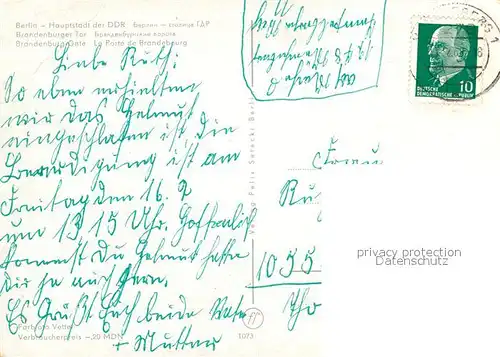 Berlin – Hauptstadt der DDR Берлин – столица ГДР
Brandenburger Tor Бранденбургские ворота
Brandenburg Gate La Porte de Brandebourg
Liebe Ruth!
So eben erhielten
wir das Helmut
eingeschlafen ist die
Beerdigung ist am
Freitag den 16. 2
um 13 15 Uhr. Hoffentlich
kommst Du Helmut hatte
Dir ja auch gern.
Es Grüßt Euch beide Vater
+ Mutter
Farbfoto Vetter
Verbraucherpreis –,20 MDN
1073
Verlag Felix Setecki Berlin
10
DEUTSCHE
DEMOKRATISCHE REPUBLIK
Frau
Ru
1055
Tho
privacy protection
Datenschutz